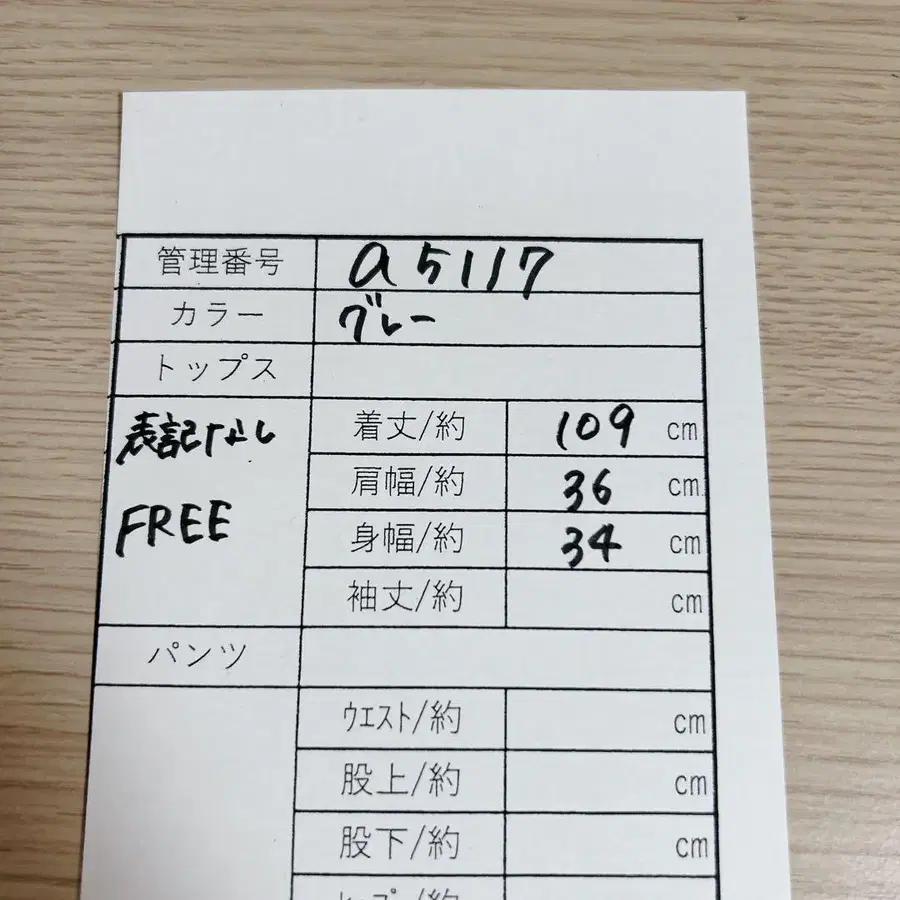 管理番号 a5117
カラー グレー
トップス
表記なし
FREE
着丈/約 109 cm
肩幅/約 36 cm
身幅/約 34 cm
袖丈/約 cm
パンツ
ウエスト/約 cm
股上/約 cm
股下/約 cm